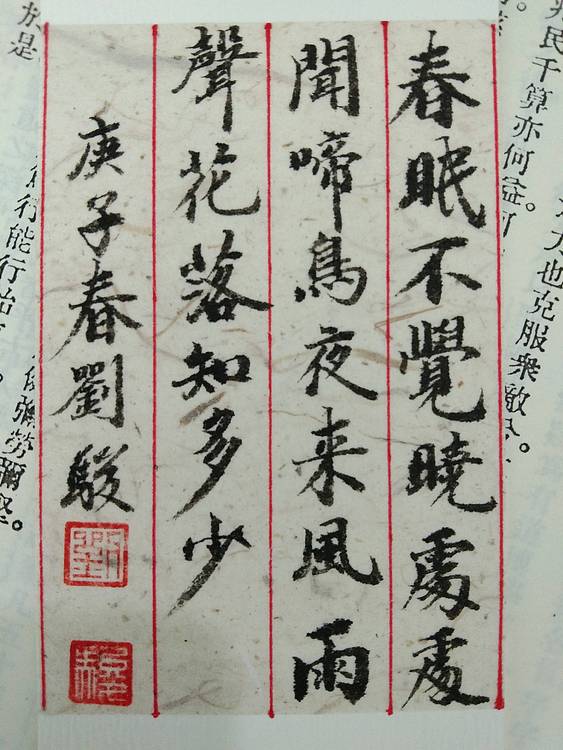 春眠不覺曉處處
聞啼鳥夜来風雨
聲花落知多少
庚子春劉駿
劉
民千算亦何益
力也克服衆敵
於是
行能行